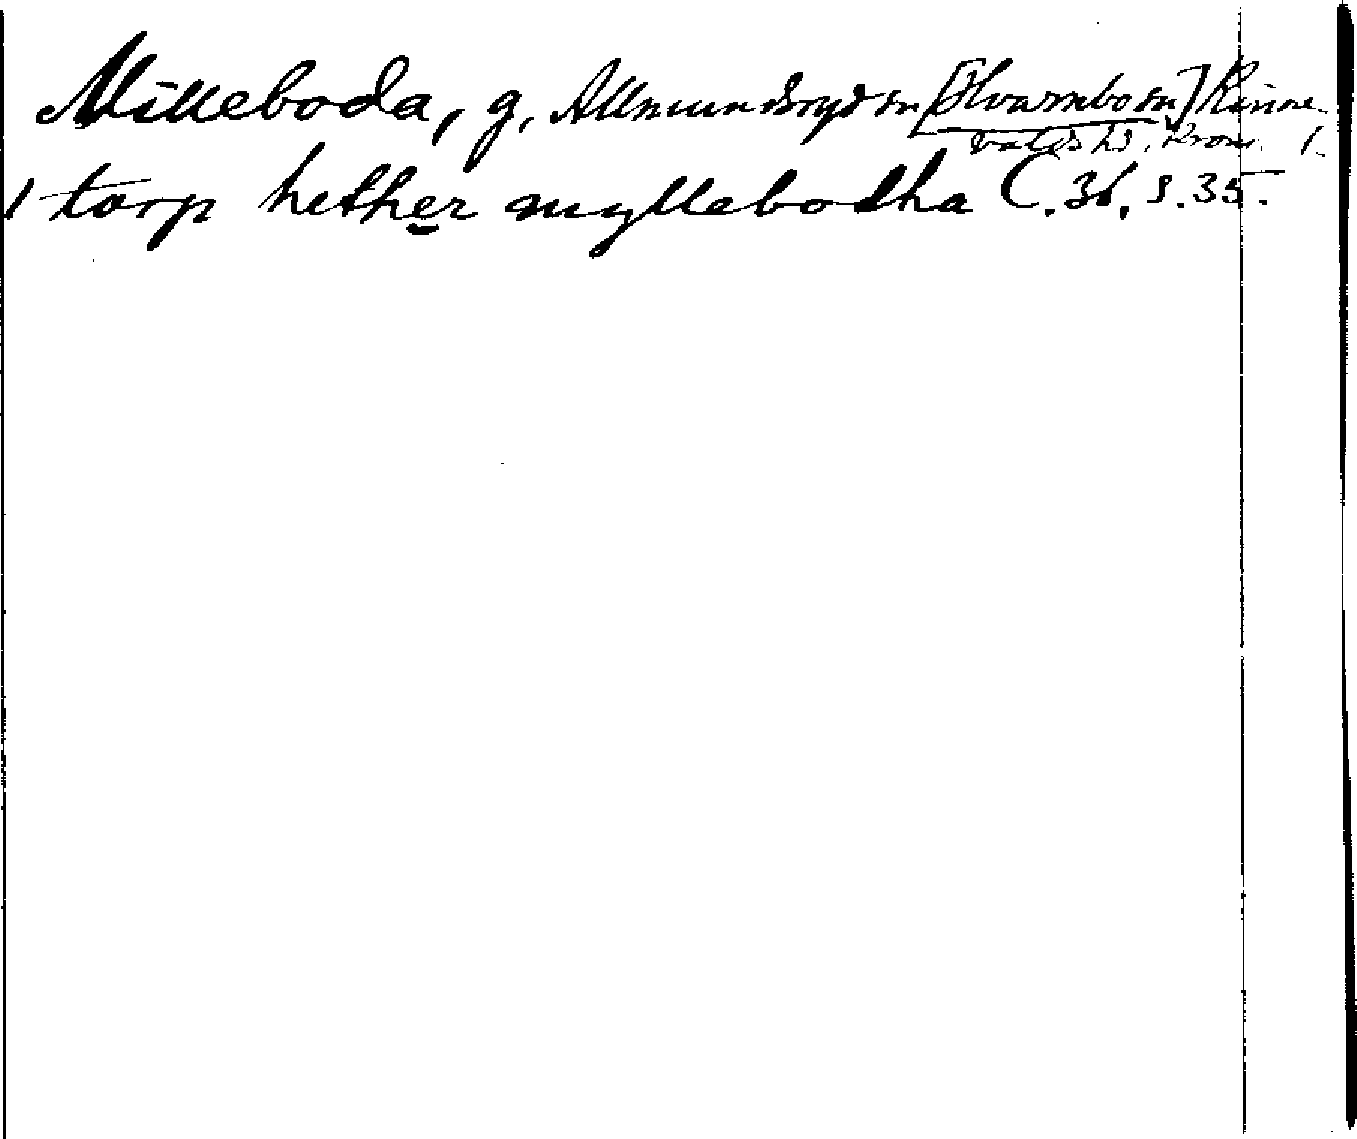 Milleboda, g, Allmundsryd sn [Hvarnbo sn] Kinne-
valds hd. Kron. l.
1 torp hether myllebodha C. 36, s. 35.